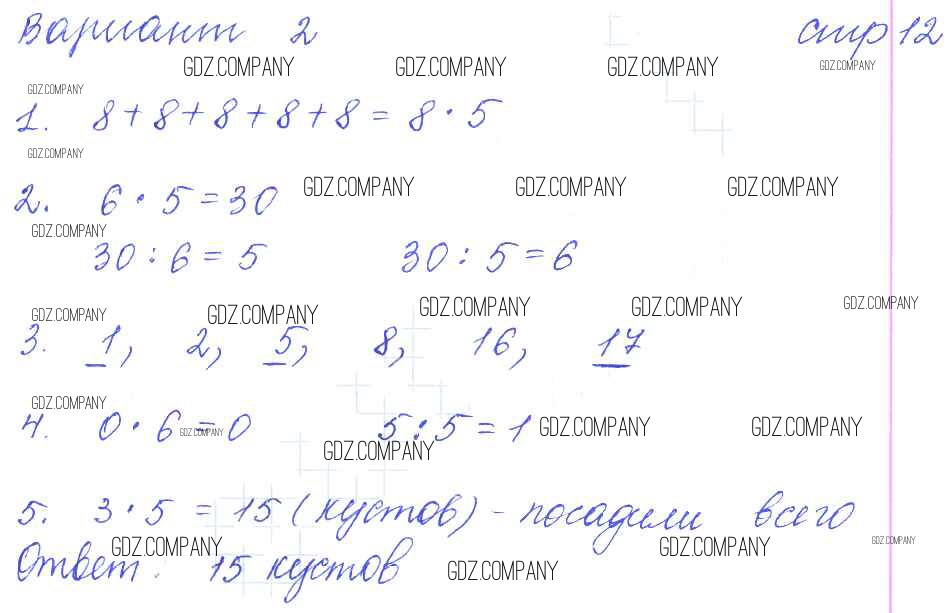 Вариант 2 стр 12
GDZ.COMPANY GDZ.COMPANY GDZ.COMPANY GDZ.COMPANY
GDZ.COMPANY
1. 8+8+8+8+8=8·5
GDZ.COMPANY
2. 6·5=30 GDZ.COMPANY GDZ.COMPANY GDZ.COMPANY
GDZ.COMPANY
30:6=5 30:5=6
GDZ.COMPANY GDZ.COMPANY GDZ.COMPANY GDZ.COMPANY GDZ.COMPANY
3. 1, 2, 5, 8, 16, 17
GDZ.COMPANY
4. 0·6=0 5:5=1 GDZ.COMPANY GDZ.COMPANY
GDZ.COMPANY GDZ.COMPANY
5. 3·5=15 (кустов) - посадили всего
GDZ.COMPANY GDZ.COMPANY GDZ.COMPANY
Ответ. 15 кустов GDZ.COMPANY